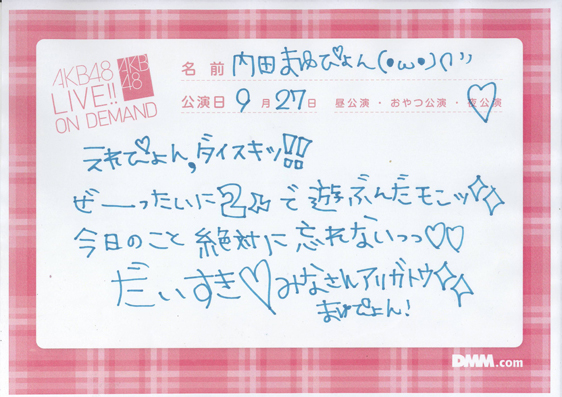 AKB48
LIVE!!
ON DEMAND
AKB
48
名前 内田まゆぴょん(●ω●)
公演日 9月27日 昼公演・おやつ公演・夜公演
えれぴょん,ダイスキッ!!
ぜーったいに2人で遊ぶんだモンッ
今日のこと絶対に忘れないっっ♡♡
だいすき♡みなさんアリガトウ
まゆぴょん!
DMM.com